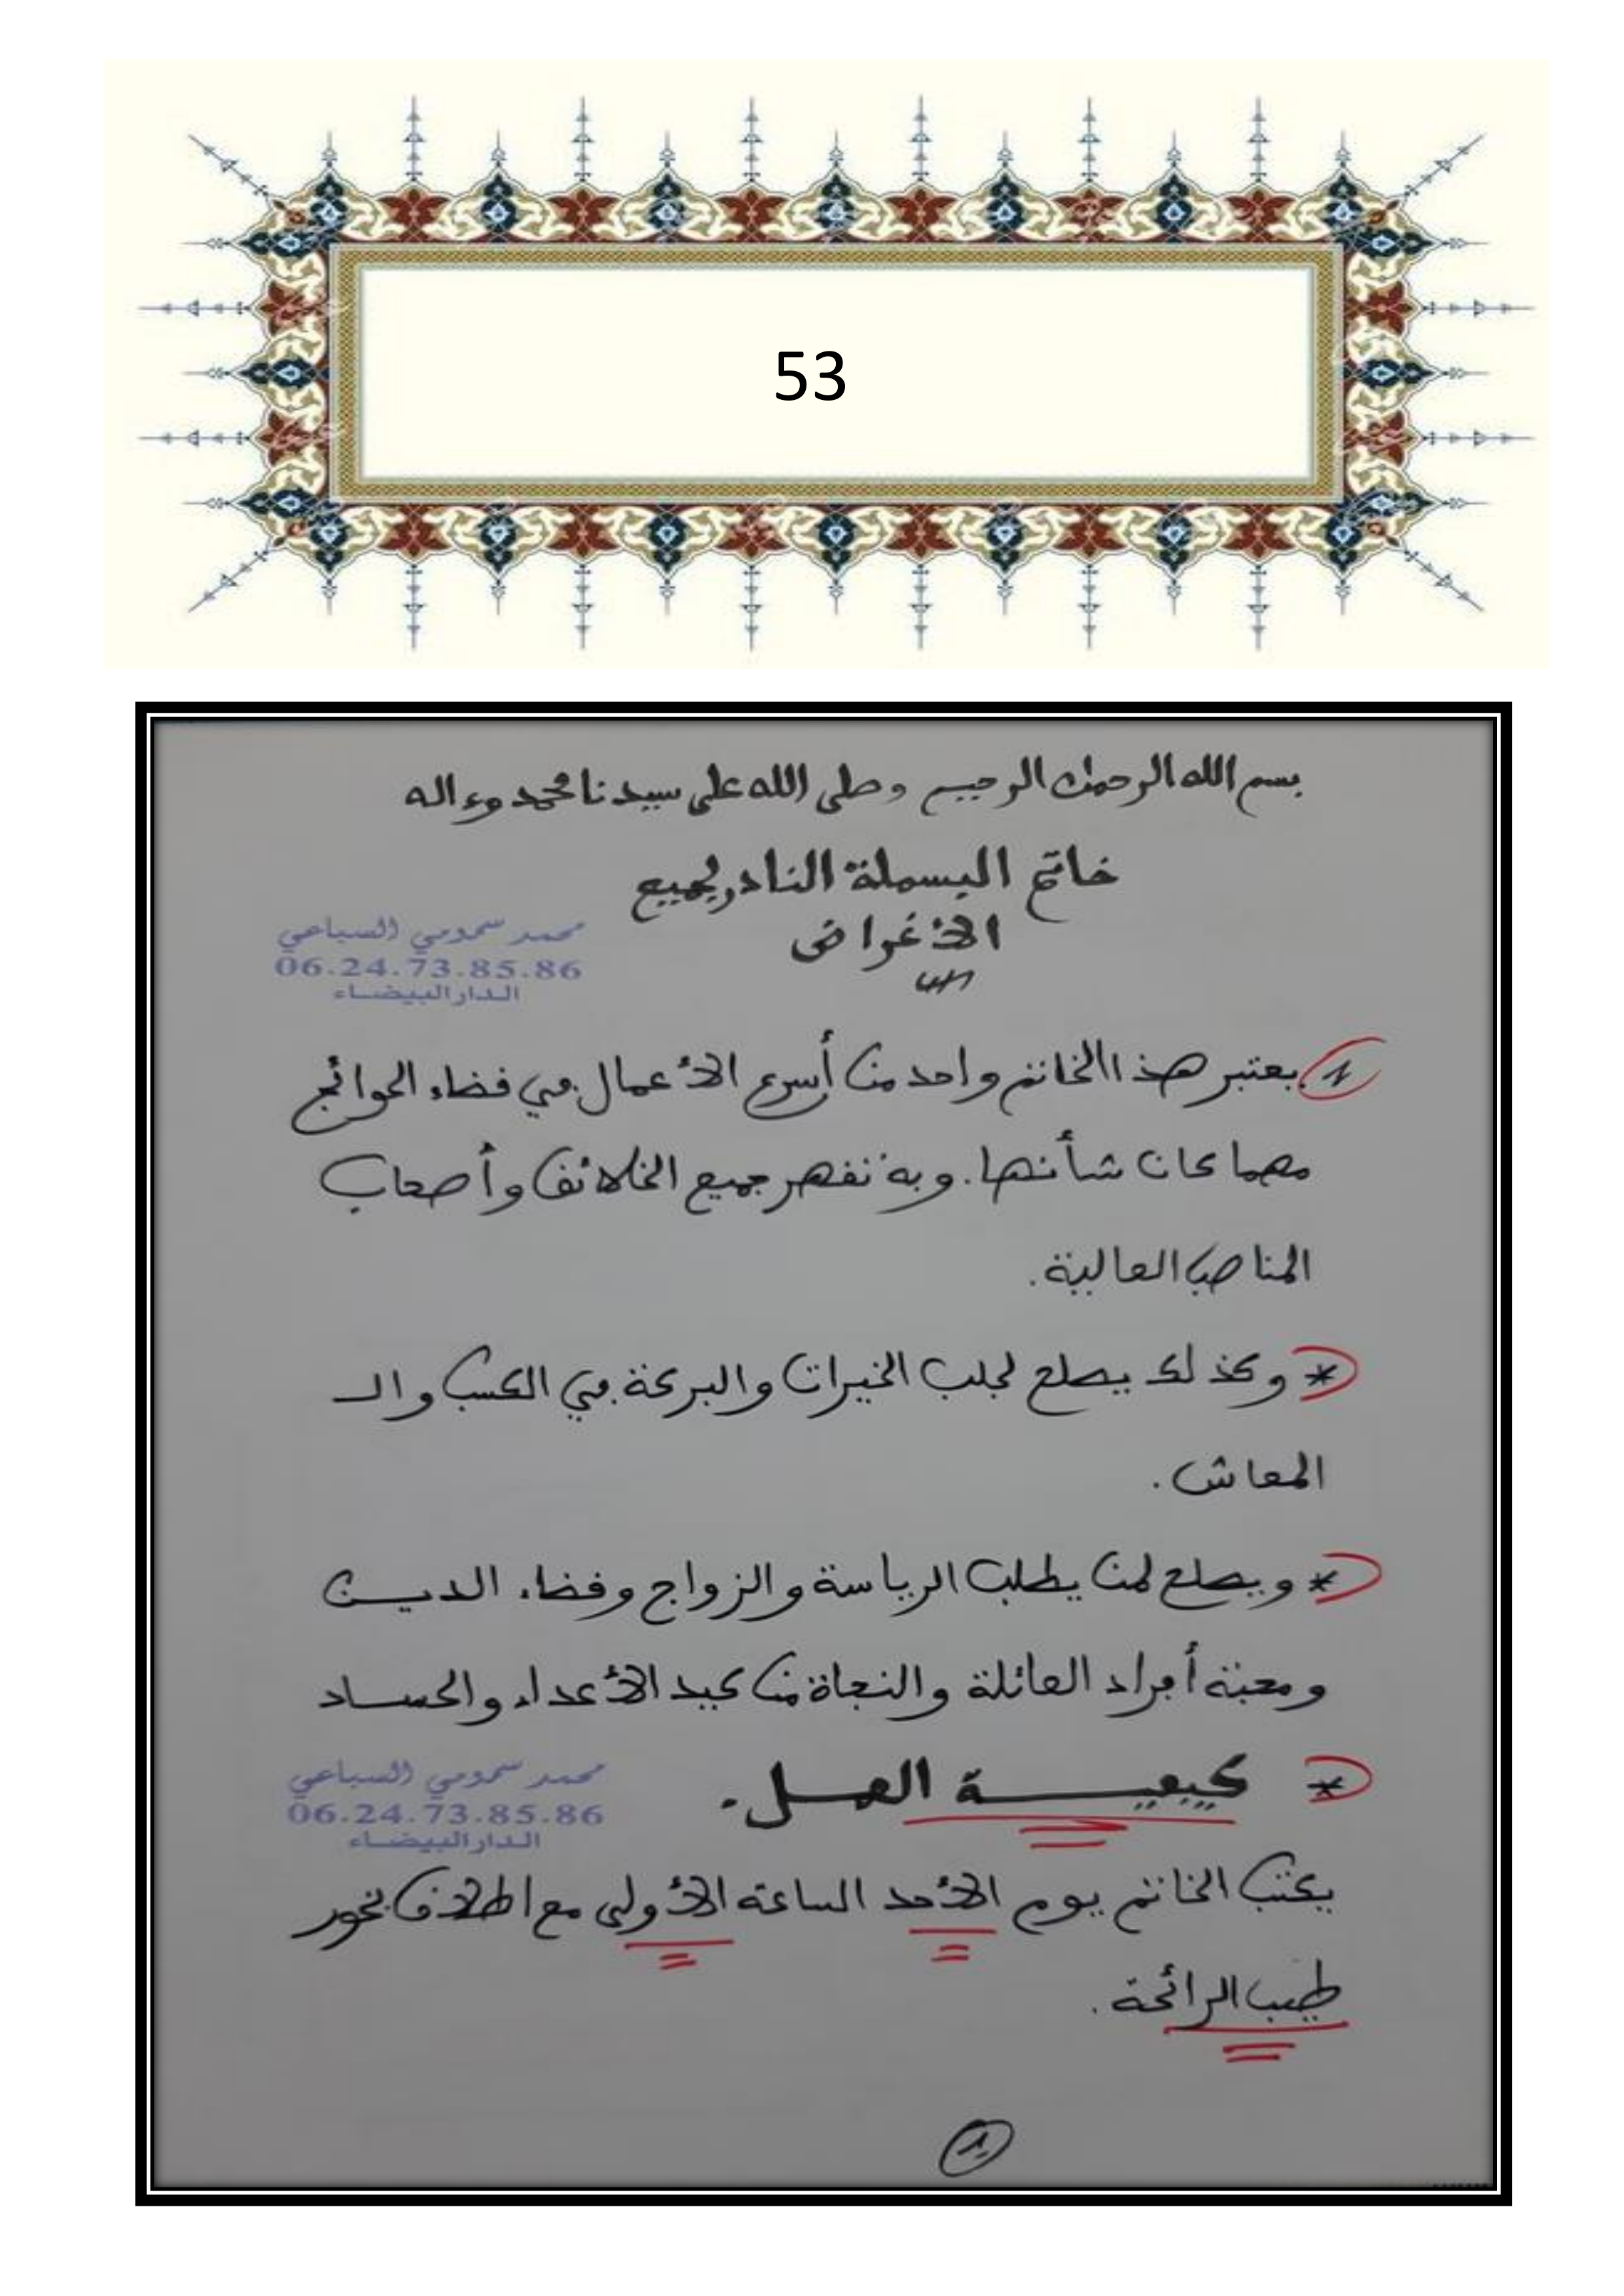 53
بسم الله الرحمان الرحيم وصلى الله على سيدنا محمد وءاله
خاتم البسملة النادر لجميع
الأغراض
محمد سمومي السباعي
06.24.73.85.86
الدار البيضاء
1 يعتبر هذا الخاتم واحد من أسرع الأعمال في قضاء الحوائج
مهما كان شأنها. وبه تقهر جميع الخلائق وأصحاب
المناصب العالية.
* وكذلك يصلح لجلب الخيرات والبركة في الكسب والـ
المعاش.
* ويصلح لمن يطلب الرياسة والزواج وقضاء الديـن
ومحبة أفراد العائلة والنجاة من كيد الأعداء والحساد
* كيفيـــة العمـل.
محمد سمومي السباعي
06.24.73.85.86
الدار البيضاء
يكتب الخاتم يوم الأحد الساعة الأولى مع اطلاق بخور
طيب الرائحة.
1